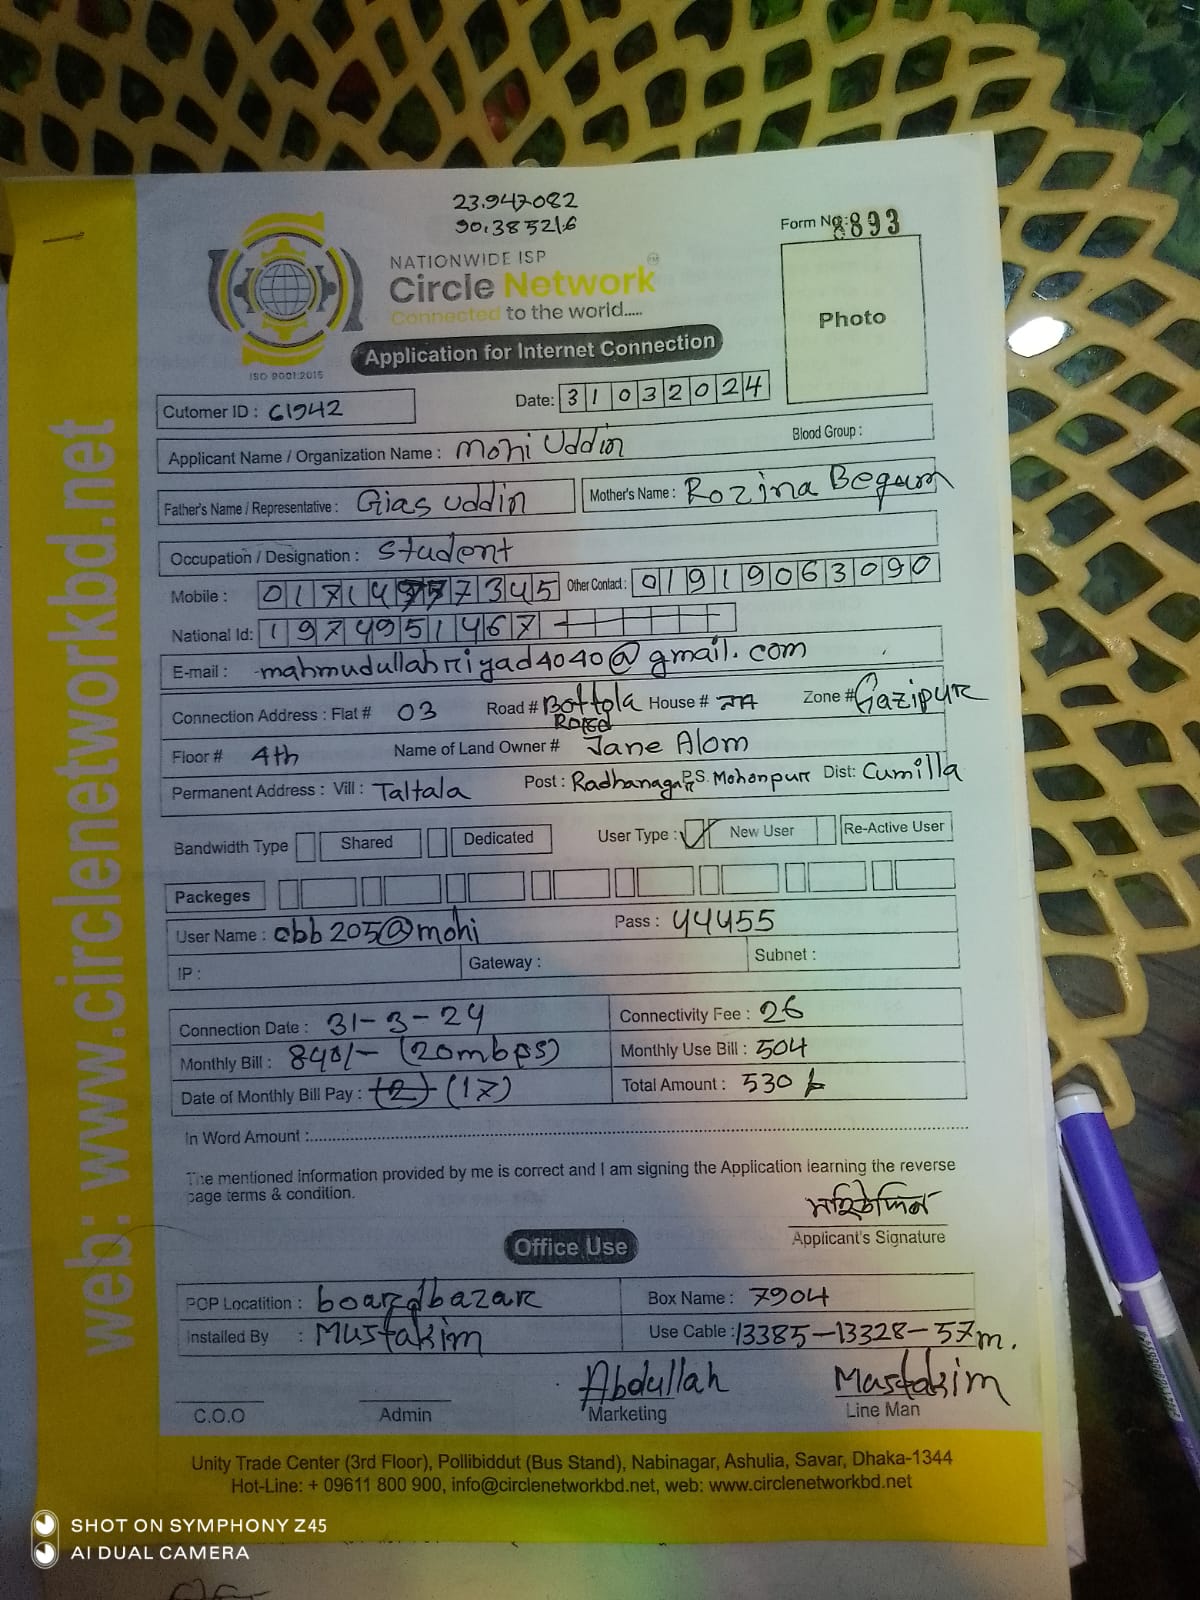 23.947082
90.385216
Form No: 8893
NATIONWIDE ISP
Circle Network
Connected to the world.....
ISO 9001:2015
Application for Internet Connection
Photo
Cutomer ID : 61942
Date: 31032024
Applicant Name / Organization Name : Mohi Uddin
Blood Group :
Father's Name / Representative : Gias uddin
Mother's Name : Rozina Begum
Occupation / Designation : Student
Mobile :
Other Contact : 01919063090
National Id: 1974951467
E-mail : mahmudullahriyad4040@gmail.com
Connection Address : Flat # 03 Road # Bottola Road House # NA Zone # Gazipur
Floor # 4th Name of Land Owner # Jane Alom
Permanent Address : Vill : Taltala Post : Radhanagar P.S. Mohonpur Dist: Cumilla
Bandwidth Type Shared Dedicated User Type : ✓ New User Re-Active User
Packeges
User Name : cbb205@mohi Pass : 44455
IP : Gateway : Subnet :
Connection Date : 31-3-24 Connectivity Fee : 26
Monthly Bill : 840/- (20mbps) Monthly Use Bill : 504
Date of Monthly Bill Pay : (2) (17) Total Amount : 530
In Word Amount :
The mentioned information provided by me is correct and I am signing the Application learning the reverse
page terms & condition.
মহিউদ্দিন
Applicant's Signature
Office Use
POP Locatition : boardbazar Box Name : 7904
Installed By : Mustakim Use Cable : 13385-13328-57m.
Abdullah Mustakim
C.O.O Admin Marketing Line Man
Unity Trade Center (3rd Floor), Pollibiddut (Bus Stand), Nabinagar, Ashulia, Savar, Dhaka-1344
Hot-Line: + 09611 800 900, info@circlenetworkbd.net, web: www.circlenetworkbd.net
web: www.circlenetworkbd.net
SHOT ON SYMPHONY Z45
AI DUAL CAMERA